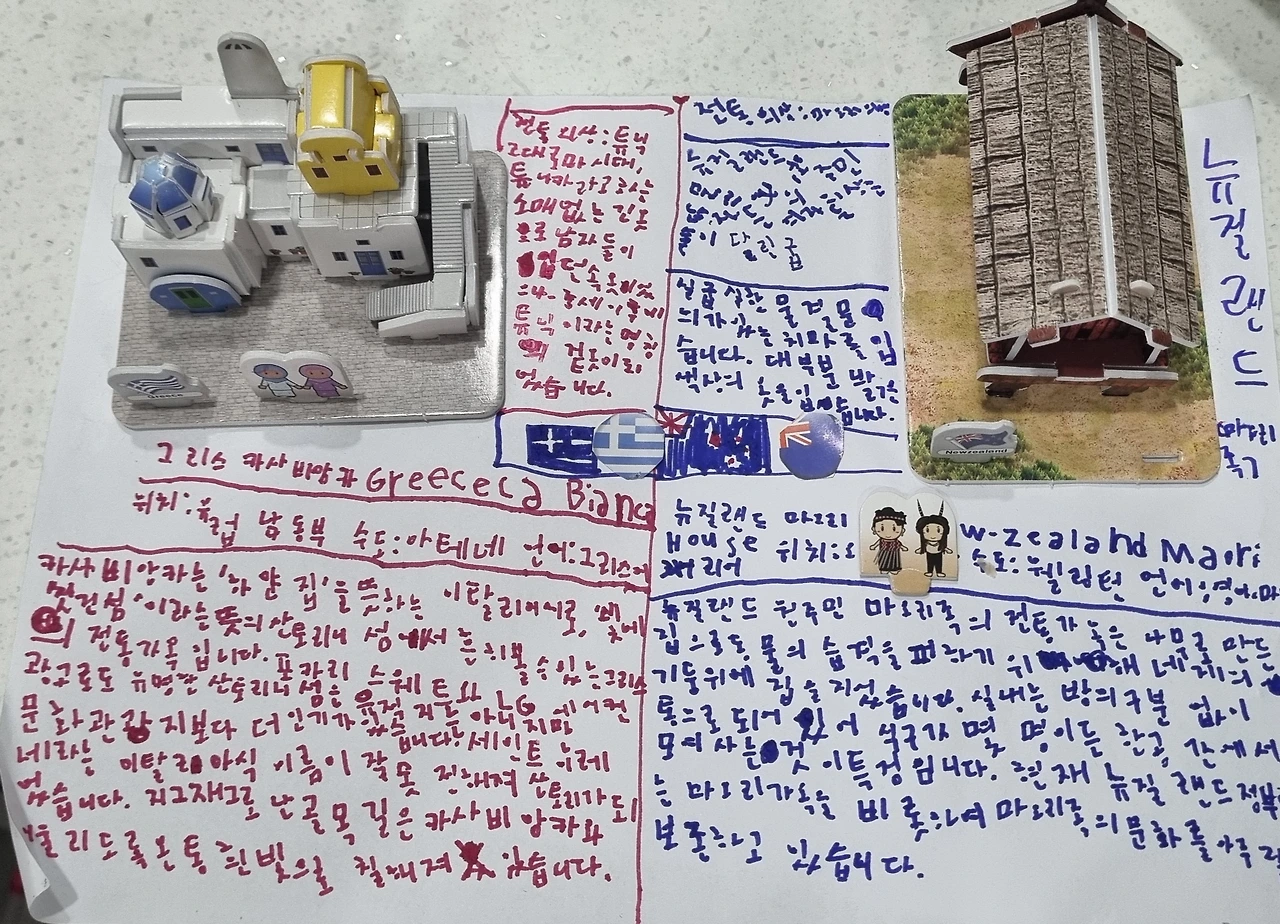 전통 의상: 튜닉
고대로마시대,
튜니카라고 하는
소매없는 긴 옷
으로 남자들이
입던 속옷이었
으나. 중세 이후에
튜닉이라는 명칭
겉옷이
었습니다.
전통 의상:
뉴질랜드 원주민
마오리족의
술이 달린
실
늬가 있는 치마를 입
습니다. 대부분 밝은
색상의 옷을 입습니다.
뉴질랜드
마오리
족
Greece
Newzealand
그리스 카사비앙카 Greececa Bianca
위치: 유럽 남동부 수도: 아테네 언어: 그리스어
카사비앙카는 '하얀 집'을 뜻하는 이탈리아어로,
'이라는 뜻의 산토리니 섬에서는 볼 수 있는 그리스
의 전통가옥입니다. 포카리 스웨트와 LG 에어컨
광고로도 유명한 산토리니 섬은 유적지는 아니지만
문화관광지보다 더 인기가 습니다. 세인트
네라는 이탈리아식 이름이 잘못 전해져 산토리가 되
었습니다. 지그재그로 난 골목길은 카사비앙카와
어울리도록 온통 흰빛으로 칠해져 있습니다.
뉴질랜드 마오리 w-zealand Maori
House 위치: 수도: 웰링턴 언어: 영어.마
리어
뉴질랜드 원주민 마오리족의 전통가옥은 나무로 만든
집으로도 물의 습격을 피하기 위해 네 개의
기둥위에 집을 지었습니다. 실내는 방의 구분 없이
통으로 되어 있어 식구가 몇 명이든 한 공간에서
모여 사는 것이 특징입니다. 현재 뉴질랜드 정부
는 마오리가옥을 비롯하여 마오리족의 문화를
보존하고 있습니다.